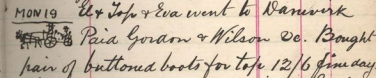 MON 19 El & Top & Eva went to Danevirk
Paid Gordon & Wilson &c. Bought
pair of buttoned boots for top 12/6 fine day